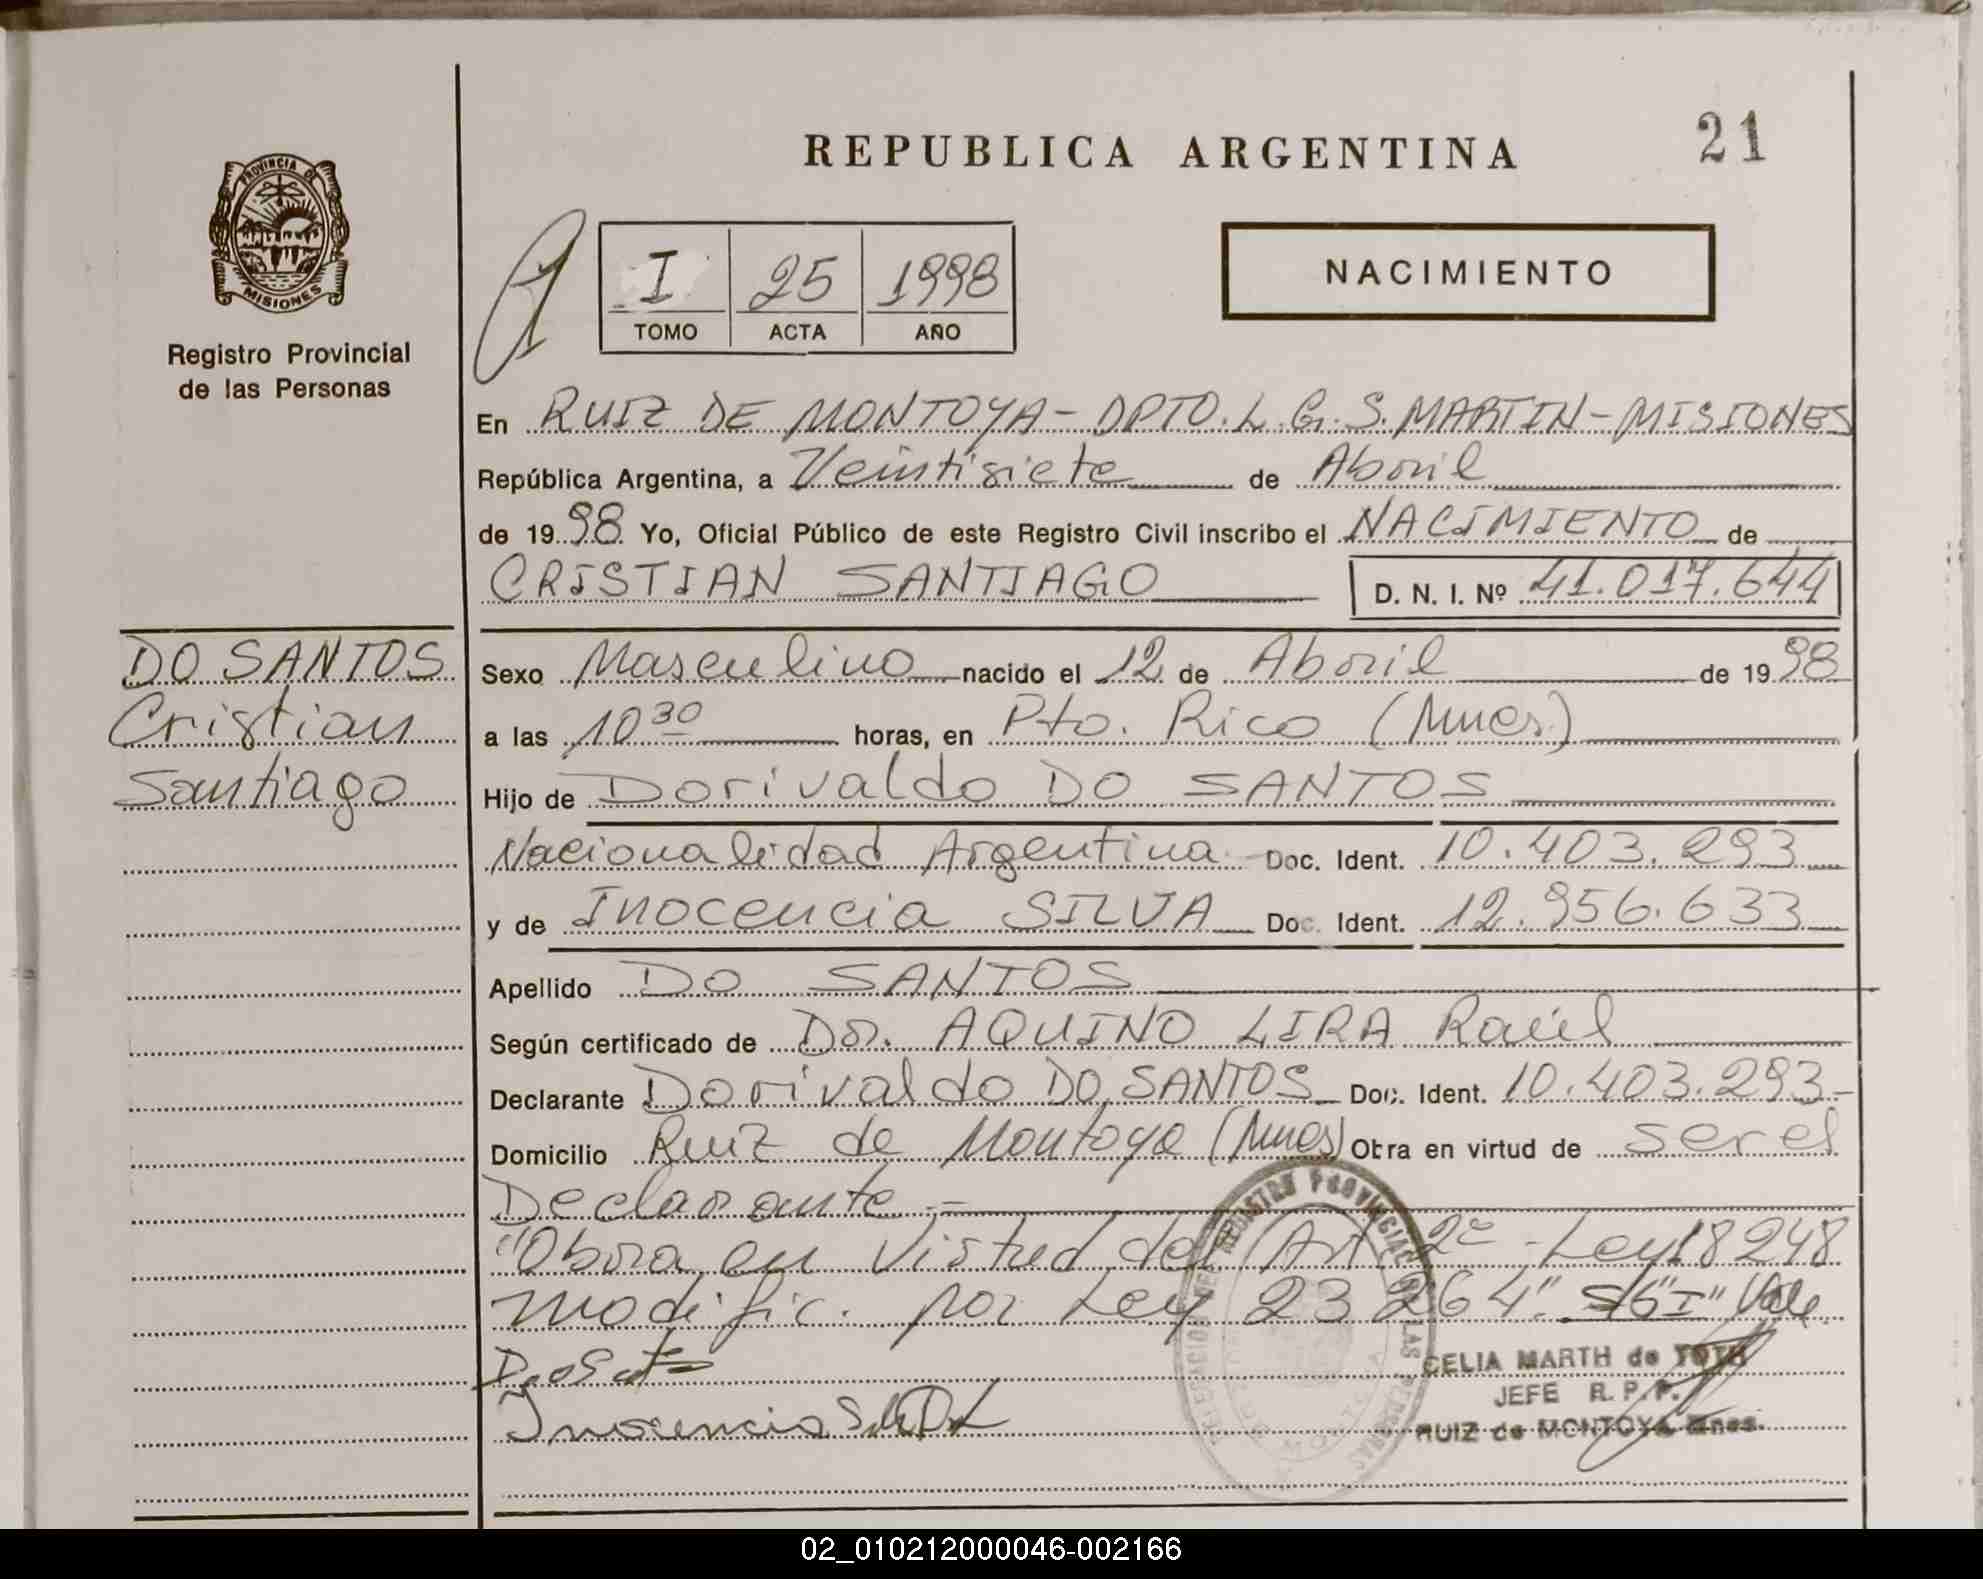 REPUBLICA ARGENTINA
21
PROVINCIA DE
MISIONES
Registro Provincial
de las Personas
I 25 1998
TOMO ACTA AÑO
NACIMIENTO
En RUIZ DE MONTOYA - DPTO. L. G. S. MARTIN - MISIONES
República Argentina, a Veintisiete de Abril
de 1998 Yo, Oficial Público de este Registro Civil inscribo el NACIMIENTO de
CRISTIAN SANTIAGO D. N. I. Nº 41.017.644
DO SANTOS
Cristian
Santiago
Sexo Masculino nacido el 12 de Abril de 1998
a las 10 30 horas, en Pto. Rico (Mnes.)
Hijo de Dorivaldo DO SANTOS
Nacionalidad Argentina Doc. Ident. 10.403.293
y de Inocencia SILVA Doc. Ident. 12.956.633
Apellido DO SANTOS
Según certificado de Dr. AQUINO LIRA Raúl
Declarante Dorivaldo DO SANTOS Doc. Ident. 10.403.293-
Domicilio Ruiz de Montoya (Mnes) Obra en virtud de ser el
Declarante.-
"Obra en Virtud del Art 2º - Ley 18248
modific. por Ley 23264". S/G "I" Vale
Inocencia
CELIA MARTH de TOTH
JEFE R. P. P.
RUIZ de MONTOYA Mnes.
DELEGACION DEL REGISTRO PROVINCIAL DE LAS PERSONAS
02_010212000046-002166